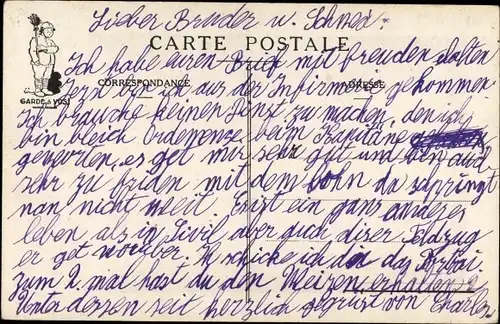 Lieber Bruder u. Schwei.
CARTE POSTALE
Ich habe euren Brief mit freuden
CORRESPONDANCE
ADRESSE
bin ich aus der Infirmerie gekommen
GARDE À VOS!
Ich brauche keinen Dinst zu machen, den ich
bin gleich Ordenenze beim Kapitäne
geworden, es get mir sehr gut, um bin auch
sehr zu friden mit dem lohn da springt
man nicht weit. Es ist ein ganz anderes
leben als in Sivil aber auch diser Feldzug
er get voruber. Ich schicke ich da das
zum 2. mal hast du den Weizen erhalten?
Unter dessen seit herzlich gegrüst von Charles